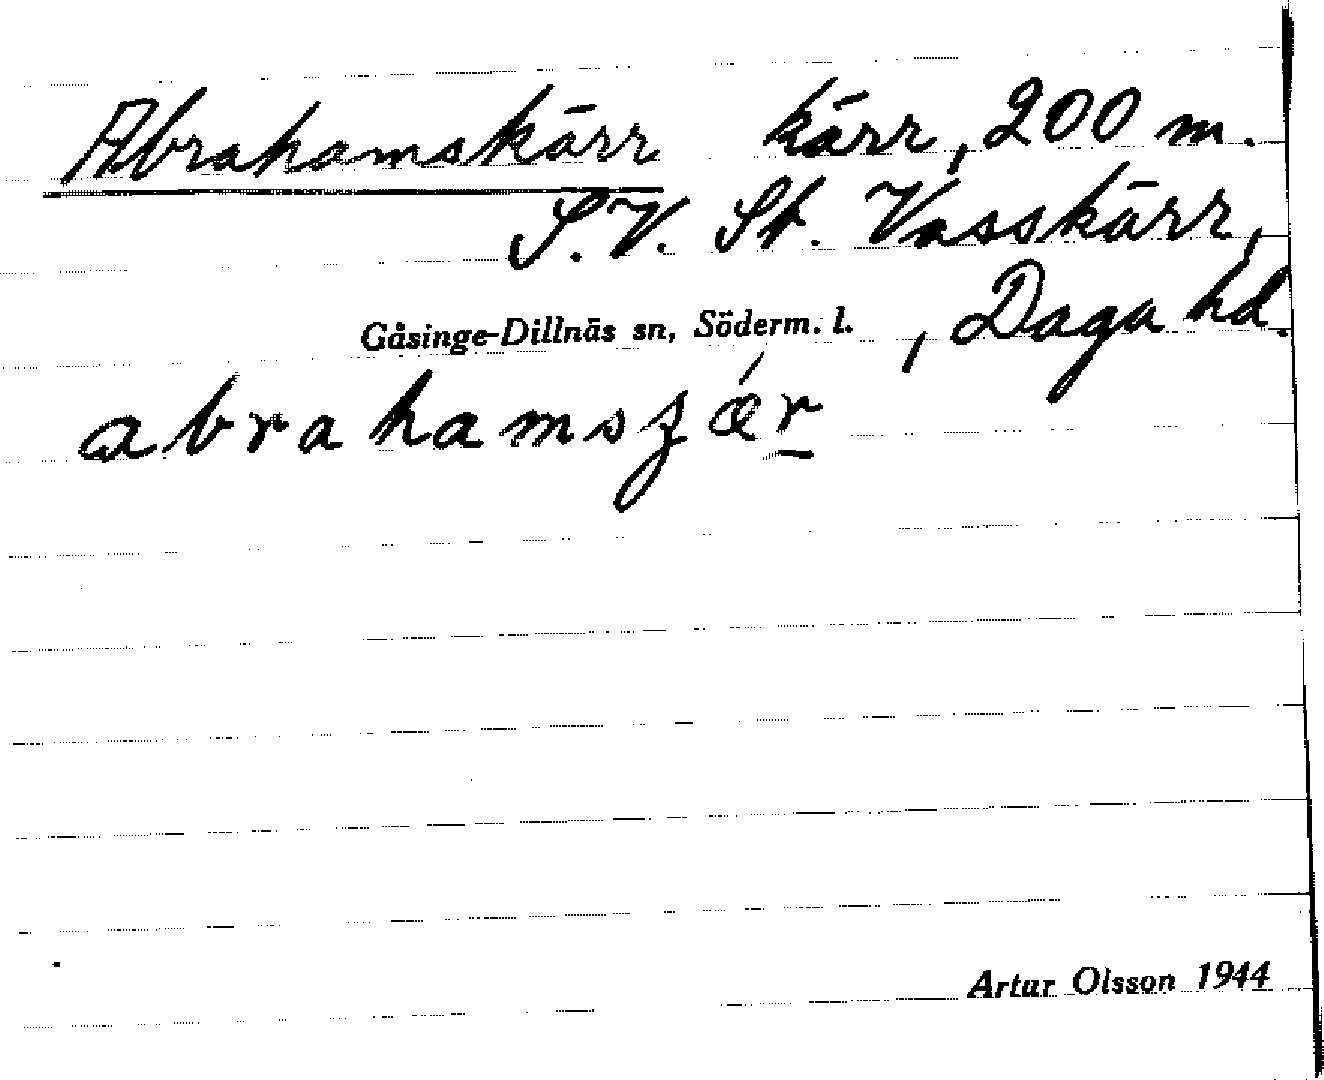 Abrahamskärr kärr, 200 m.
S.V. St. Vasskärr,
Gåsinge-Dillnäs sn, Söderm. l. , Daga hd.
abrahamsʒǽr
Artur Olsson 1944